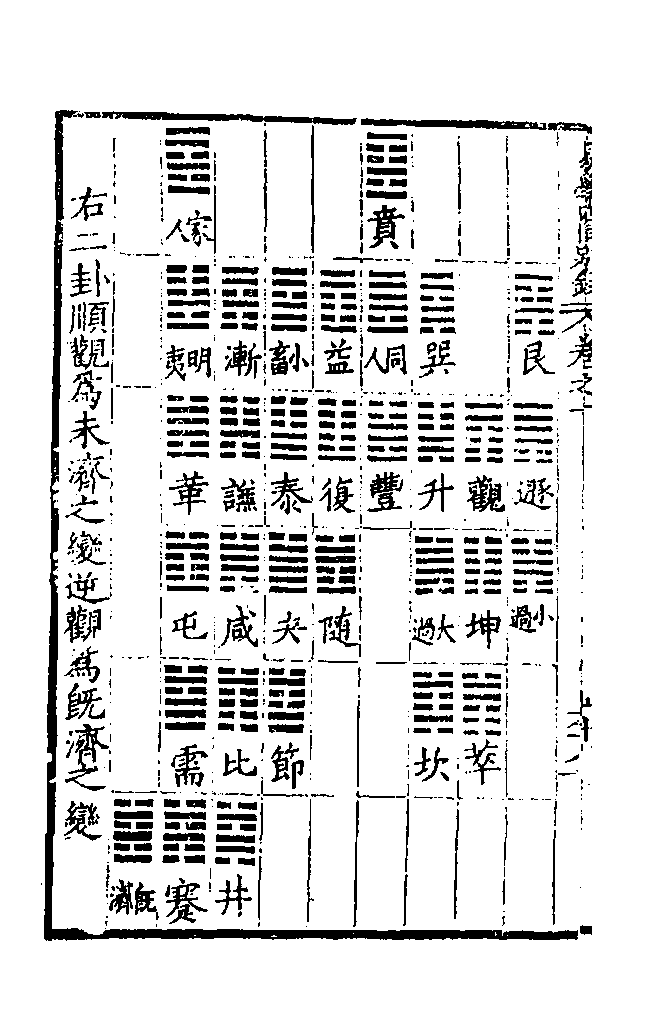 易學四同别錄 卷之
艮
遯
小過
觀
坤
萃
巽
升
大過
坎
賁
同人
豐
益
復
随
小畜
泰
夬
節
漸
謙
咸
比
井
家人
明夷
革
屯
需
蹇
既濟
右二卦順觀爲未濟之變逆觀爲既濟之變